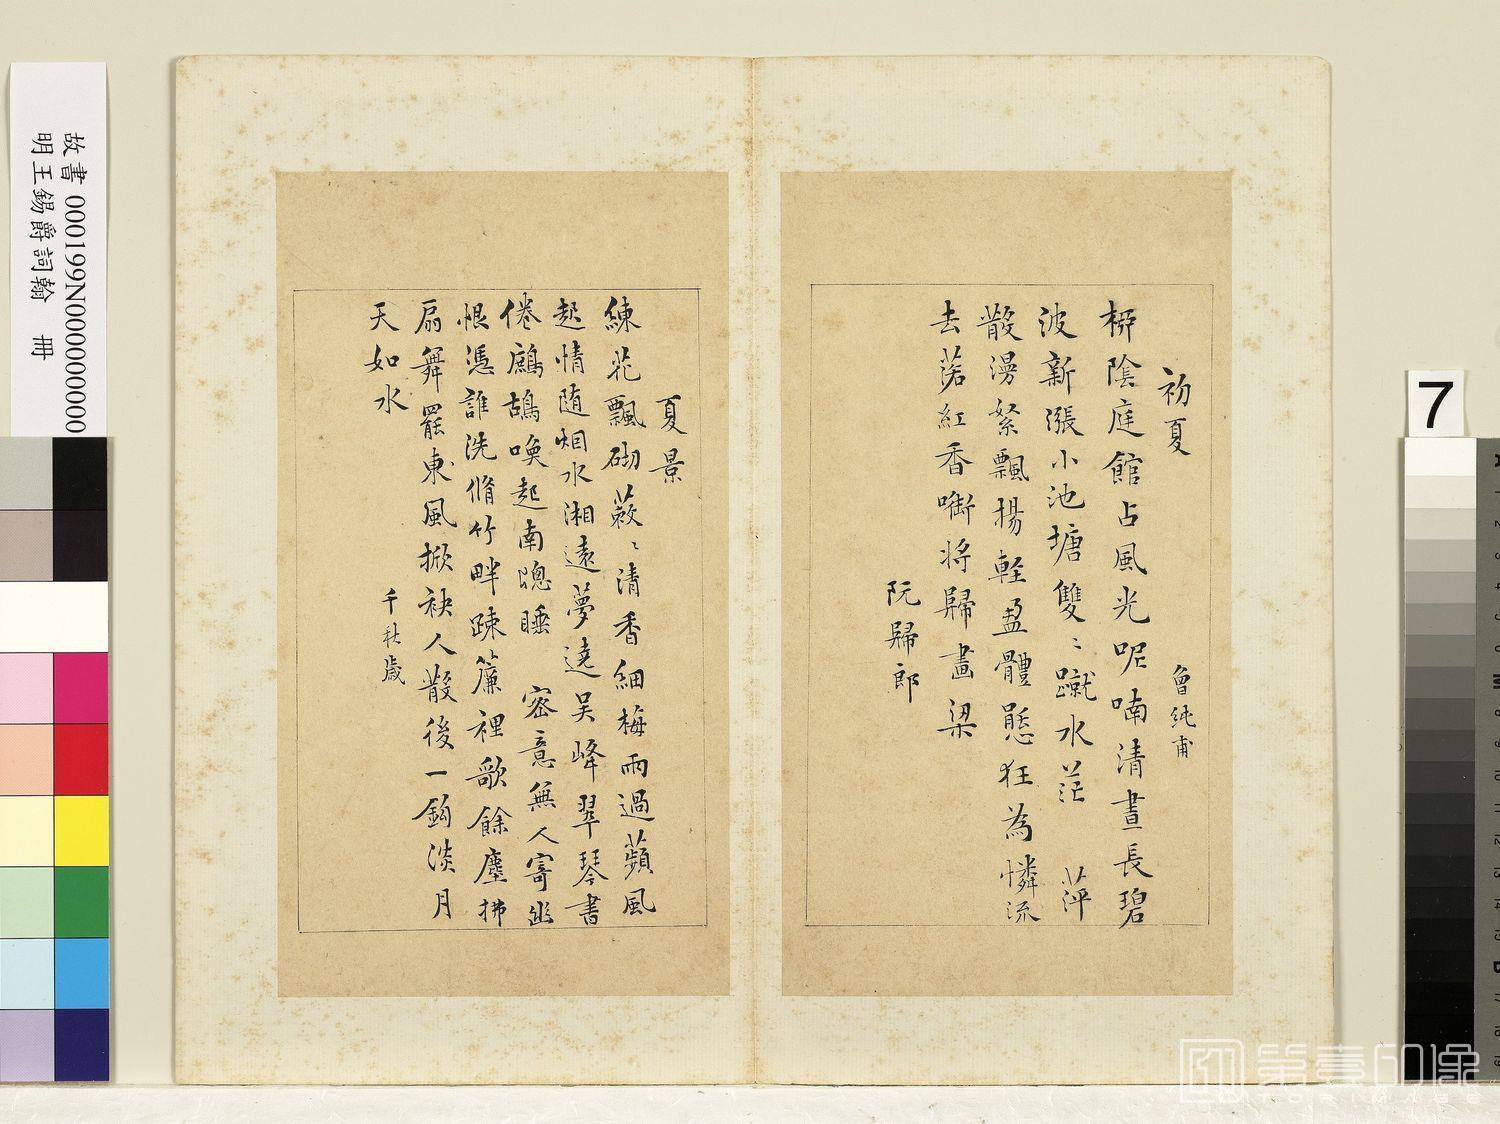 初夏
曾純甫
栁陰庭館占風光呢喃清晝長碧
波新漲小池塘雙〻蹴水茫　萍
散漫絮飄揚輕盈體態狂為憐流
去落紅香啣將歸畫梁
阮歸郎
夏景
練花飄砌蔌〻清香細梅雨過蘋風
起情随烟水湘遠夢遶吴峰翠琴書
倦鷓鴣唤起南牕睡　密意無人寄幽
恨憑誰洗脩竹畔踈簾裡歌餘塵拂
扇舞罷東風掀袂人散後一鈎淡月
天如水
千秋歲
故書 000199N000000000
明王錫爵詞翰　冊
7
第壹印像
TOPIMAGE